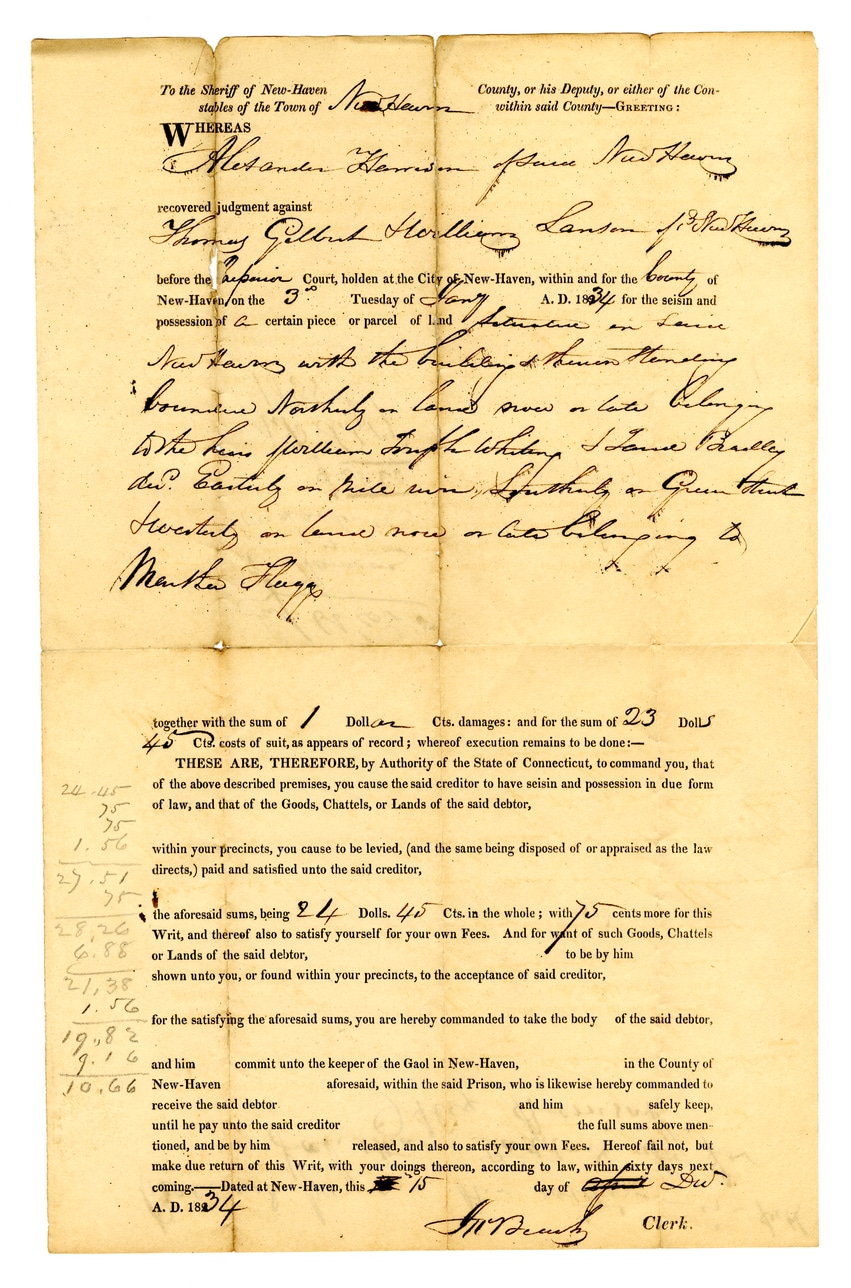 To the Sheriff of New-Haven County, or his Deputy, or either of the Con-
stables of the Town of New Haven within said County—GREETING:
WHEREAS
Alexander Harrison of said New Haven
recovered judgment against
Thomas Gilbert & William Lanson of sd New Haven
before the Superior Court, holden at the City of New-Haven, within and for the County of
New-Haven, on the 3d Tuesday of Jany A. D. 1834 for the seisin and
possession of a certain piece or parcel of land situated in said
New Haven with the buildings thereon standing
bounded Northerly on land now or late belonging
to the heirs of William Joseph Whiting & Bradley
decd. Easterly on Mill river, Southerly on Green Street
& westerly on land now or late belonging to
Martha Flagg
together with the sum of 1 Dollar Cts. damages: and for the sum of 23 Dolls
45 Cts. costs of suit, as appears of record; whereof execution remains to be done:—
THESE ARE, THEREFORE, by Authority of the State of Connecticut, to command you, that
of the above described premises, you cause the said creditor to have seisin and possession in due form
of law, and that of the Goods, Chattels, or Lands of the said debtor,
within your precincts, you cause to be levied, (and the same being disposed of or appraised as the law
directs,) paid and satisfied unto the said creditor,
the aforesaid sums, being 24 Dolls. 45 Cts. in the whole; with 75 cents more for this
Writ, and thereof also to satisfy yourself for your own Fees. And for want of such Goods, Chattels
or Lands of the said debtor, to be by him
shown unto you, or found within your precincts, to the acceptance of said creditor,
for the satisfying the aforesaid sums, you are hereby commanded to take the body of the said debtor,
and him commit unto the keeper of the Gaol in New-Haven, in the County of
New-Haven aforesaid, within the said Prison, who is likewise hereby commanded to
receive the said debtor and him safely keep,
until he pay unto the said creditor the full sums above men-
tioned, and be by him released, and also to satisfy your own Fees. Hereof fail not, but
make due return of this Writ, with your doings thereon, according to law, within sixty days next
coming.—Dated at New-Haven, this 15 day of April Dec.
A. D. 1834
Clerk.
24.45
75
75
1.56
27.51
75
28,26
6.88
21,38
1.56
19.,82
9.16
10.66